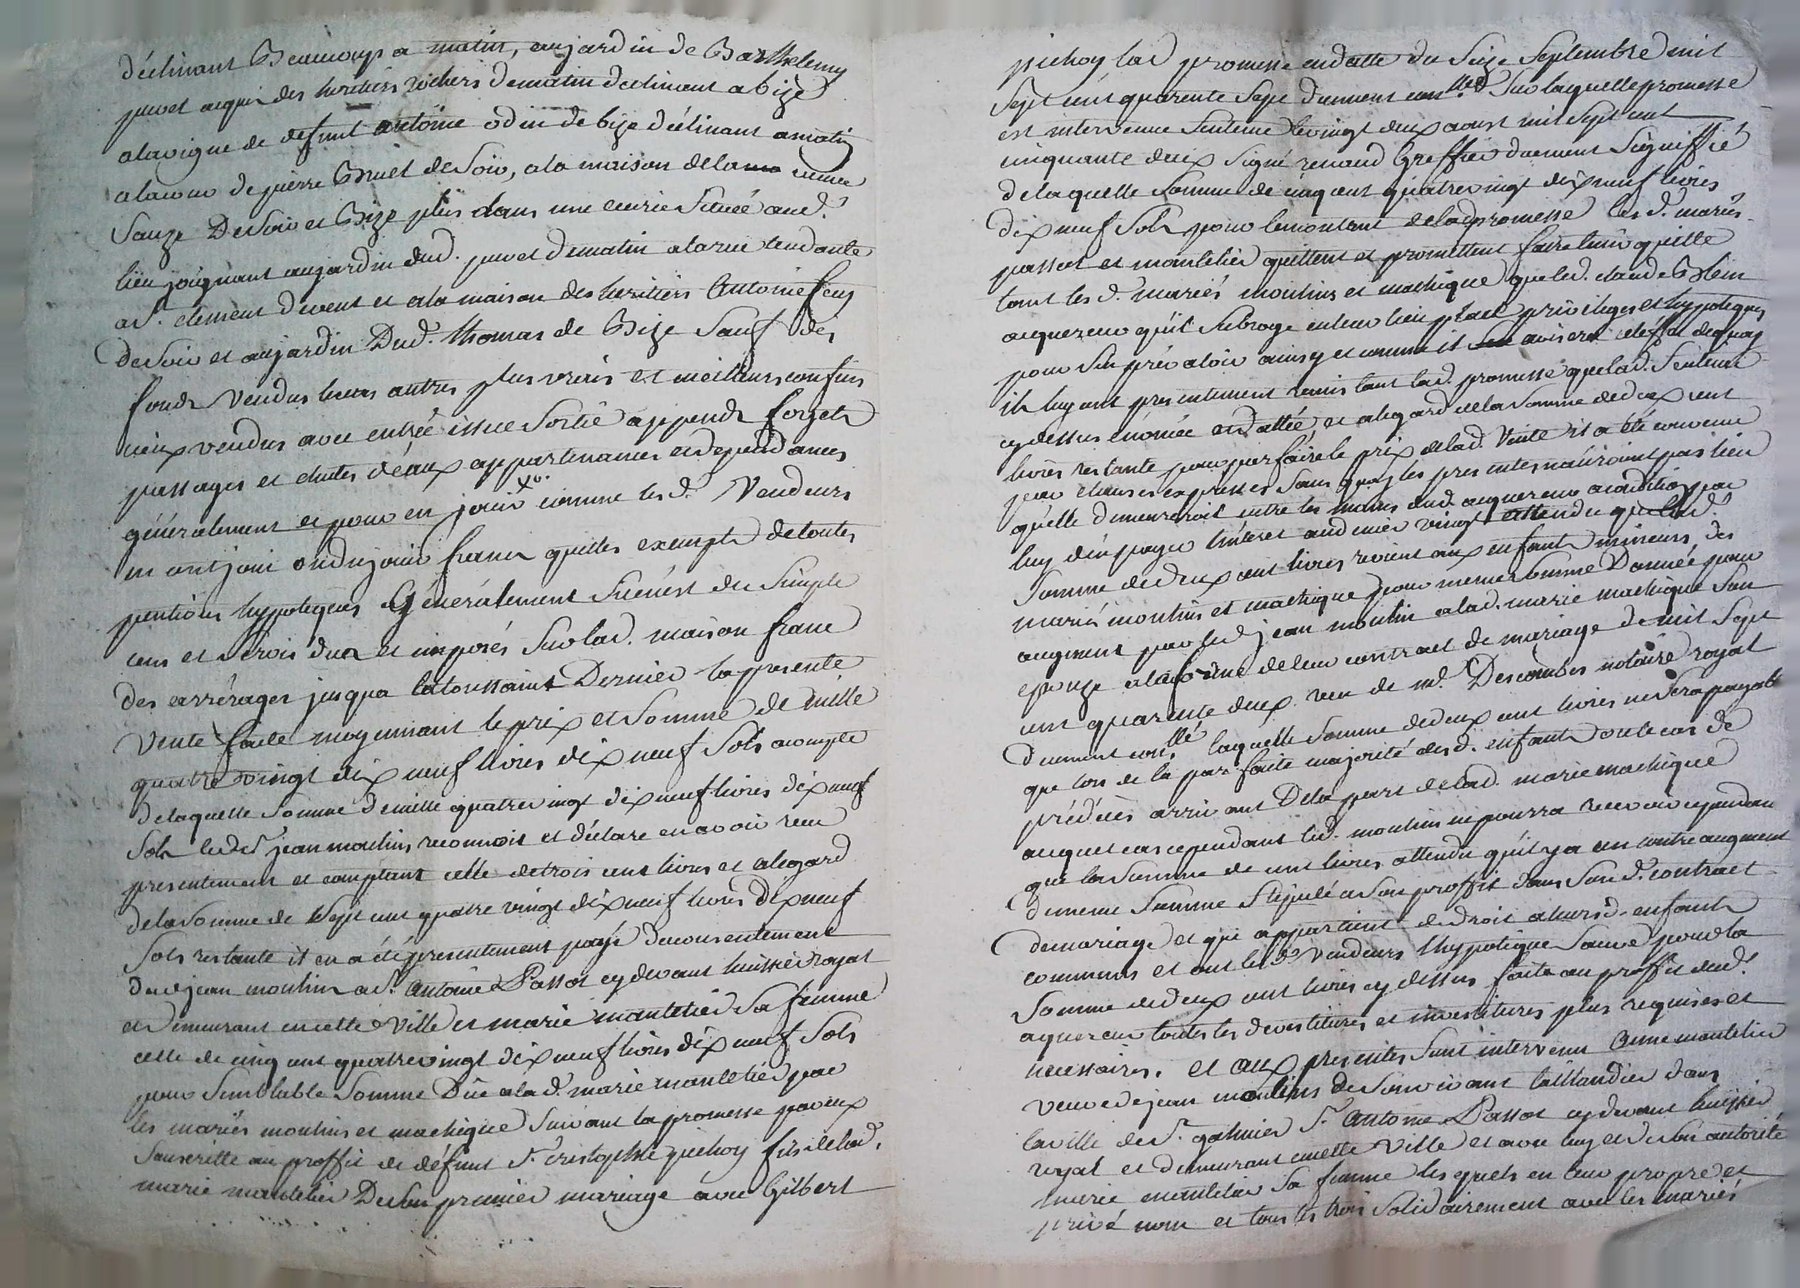 déclinant Beaucoup a matin, au jardin de Barthelemy
juvet acquis des heritiers rochers de matin declinant a bize
a la vigne de defunt antoine odin de bize déclinant a matin
a la cour de pierre Bruët de Soir, a la maison de la veuve
Sauze De Soir et Bize plus dans une ecurie Située aud.
lieu joignant au jardin dud. juvet de matin a la rue tendante
a St. clement de vent et a la maison des heritiers Antoine
de Soir et au jardin Dud. thomas de Bize Sauf des
fonds vendus leurs autres plus vrais et meilleurs confins
iceux vendus avec entrée issue Sortie appends forjets
passages et chutes d'eaux appartenances et dependances
généralement et pour en jouir comme les d. Vendeurs
en ont joui ou du jouir francs quittes exempts de toutes
pentions hypoteques Generalement Sicuest du Simple
cens et Servis dus et imposés Sur lad. maison franc
des arrérages jusqu'a la toussaint Dernier la presente
Vente faite moyennant le prix et Somme de mille
quatre vingt dix neuf livres dix neuf Sols acompte
de laquelle Somme de mille quatre vingt dix neuf livres dix neuf
Sols led. Sr. jean moulin reconnoit et déclare en avoir reçu
presentement et comptant celle de trois cent livres et a l'egard
de la Somme de Sept cent quatre vingt dix neuf livres dix neuf
Sols restante il en a été presentement payé du consentement
dud. jean moulin a Sr. Antoine Passot cy devant huissier royal
et demeurant en cette Ville et marie mantelier Sa femme
celle de cinq cent quatre vingt dix neuf livres dix neuf Sols
pour Semblable Somme Düe a lad. marie mantelier par
les mariés moulins et machique Suivant la promesse par eux
Souscritte au proffit de défunt Sr. Cristophle pichoy fils de lad.
marie mantelier De Son premier mariage avec Gilbert
pichoy lad. promesse en datte du Seize Septembre mil
Sept cent quarente Sept duement conllée Sur laquelle promesse
est intervenue Sentence le vingt deux aoust mil Sept cent
cinquante deux Signé renaud Greffier duement Signiffié
de laquelle Somme de cinq cent quatre vingt dix neuf livres
dix neuf Sols pour le montant de lad. promesse les d. mariés
passot et mantelier quittent et promettent faire tenir quitte
tant les d. mariés moulins et machique que led. claude
acquereur qu'il Subroge en leur lieu place privileges et hypoteques
pour S'en prévaloir ainsy et comme il avisera et effet de quoy
ils luy ont presentement remis tant lad. promesse que lad. Sentence
cy dessus énoncée et dattée et a l'egard de la Somme de deux cent
livres restante pour parfaire le prix de lad. Vente il a été convenu
par clauses expresses Sans quoy les presentes n'auroint pas lieu
qu'elle demeureroit entre les mains dud. acquereur a condition par
luy d'en payer l'interet au denier vingt attendu que lad.
Somme de deux cent livres revient aux enfants mineurs des
mariés moulins et machique pour meme Somme Donnée pour
augment par led. jean moulin a lad. marie machique Son
epouse a la forme de leur contract de mariage de mil Sept
cent quarente deux reçu de Me. Descombes notaire royal
duement conllé laquelle Somme de deux cent livres ne Sera payable
que lors de la parfaite majorité des d. enfants ou le cas de
prédécès arrivant De la part de lad. marie machique
auquel cas cependant led. moulin ne pourra recevoir cependant
que la Somme de cent livres attendu qu'il y a un contre augment
de meme Somme Stipulé a Son proffit dans Son d. contract
de mariage et qui appartient de droit a leurs d. enfants
communs et ont les d. vendeurs l'hypoteque Sauve pour la
Somme de deux cent livres cy dessus faite au proffit dud.
acquereur toutes les devetitures et investitures plus requises et
necessaires. et aux presentes Sont intervenu Anne mantelier
veuve de jean moulins de Son vivant taillandier dans
la ville de St. galmier Sr. Antoine Passot cy devant huissier
royal et demeurant en cette Ville et avec luy et de Son autorité
marie mantelier Sa femme lesquels en leur propre et
privé nom et tous les trois Solidairement avec les mariés